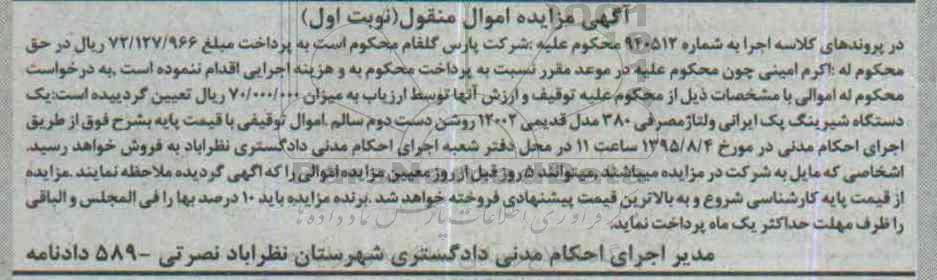 آگهی مزایده اموال منقول(نوبت اول)
در پروندهای کلاسه اجرا به شماره ۹۴۰۵۱۲ محکوم علیه :شرکت پارس گلفام محکوم است به پرداخت مبلغ ۷۲/۱۲۷/۹۶۶ ریال در حق
محکوم له :اکرم امینی چون محکوم علیه در موعد مقرر نسبت به پرداخت محکوم به و هزینه اجرایی اقدام ننموده است .به درخواست
محکوم له اموالی با مشخصات ذیل از محکوم علیه توقیف و ارزش آنها توسط ارزیاب به میزان ۷۰/۰۰۰/۰۰۰ ریال تعیین گردیده است:یک
دستگاه شیرینگ پک ایرانی ولتاژ مصرفی ۳۸۰ مدل قدیمی ۱۲۰۰۲ روشن دست دوم سالم .اموال توقیفی با قیمت پایه بشرح فوق از طریق
اجرای احکام مدنی در مورخ ۱۳۹۵/۸/۴ ساعت ۱۱ در محل دفتر شعبه اجرای احکام مدنی دادگستری نظراباد به فروش خواهد رسید.
اشخاصی که مایل به شرکت در مزایده میباشند .میتوانند ۵ روز قبل از روز معین مزایده اموالی را که اگهی گردیده ملاحظه نمایند .مزایده
از قیمت پایه کارشناسی شروع و به بالاترین قیمت پیشنهادی فروخته خواهد شد .برنده مزایده باید ۱۰ درصد بها را فی المجلس و الباقی
را ظرف مهلت حداکثر یک ماه پرداخت نماید.
مدیر اجرای احکام مدنی دادگستری شهرستان نظراباد نصرتی -۵۸۹ دادنامه